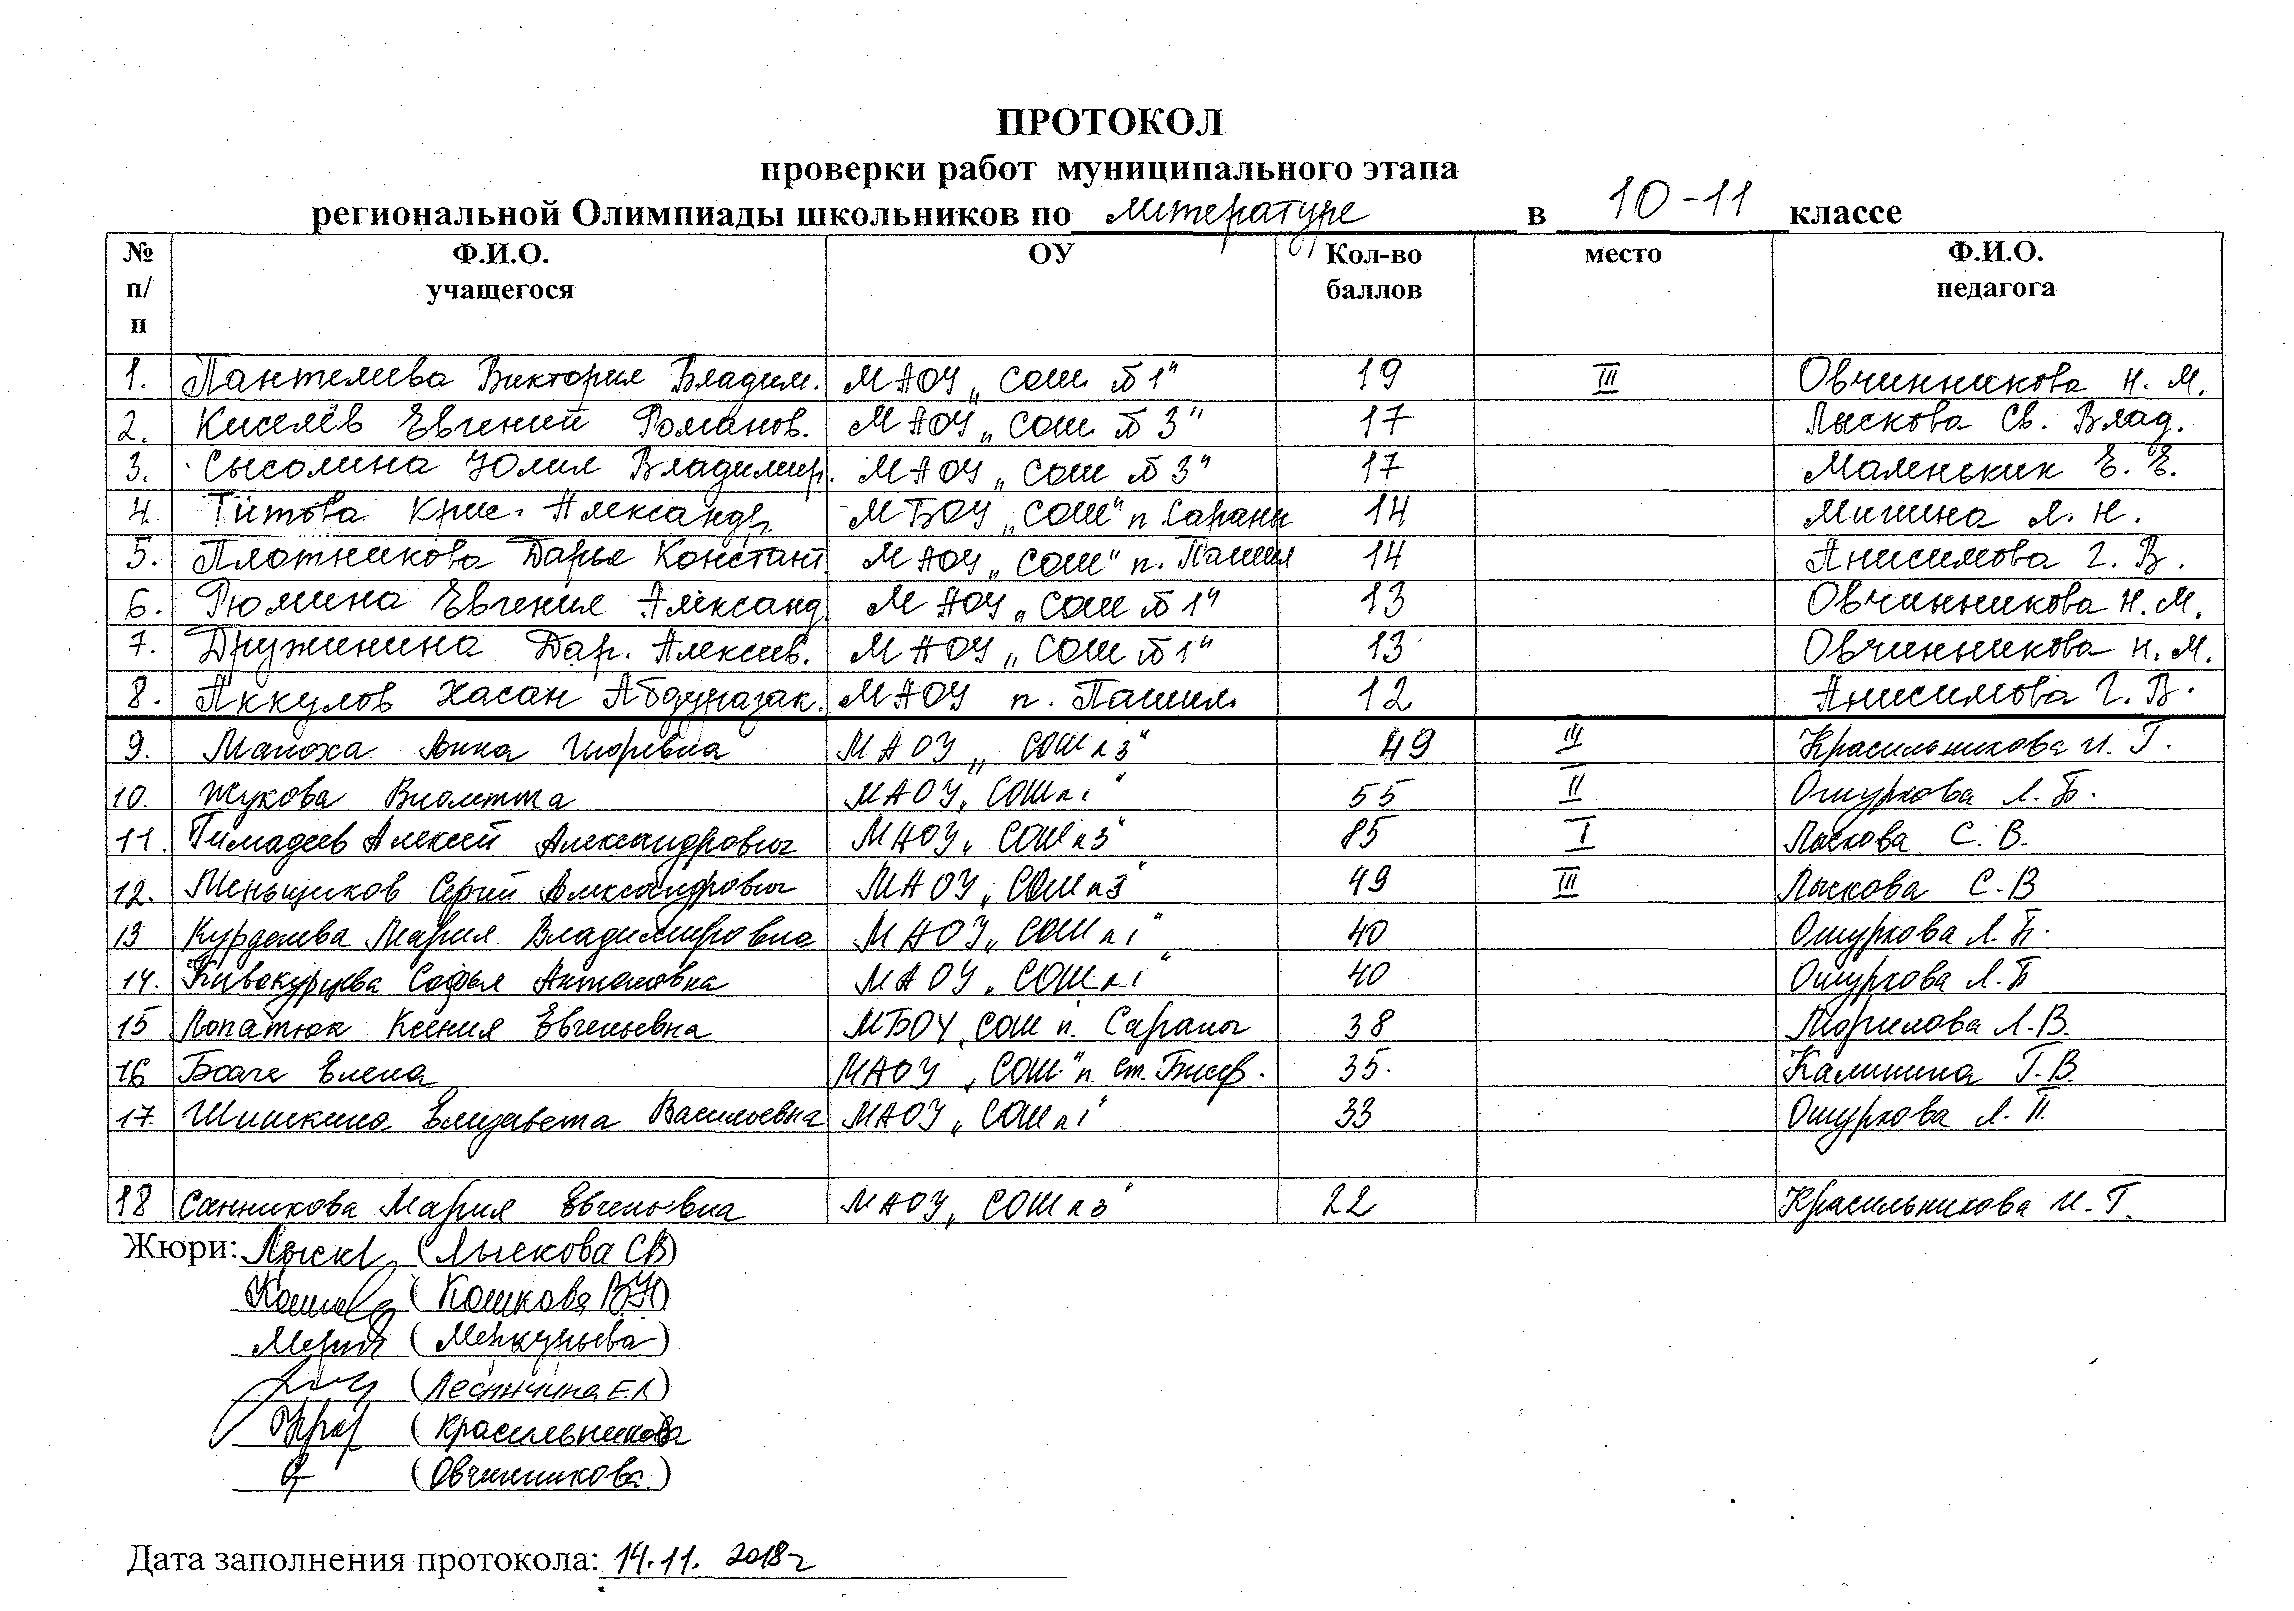 ПРОТОКОЛ
проверки работ муниципального этапа
региональной Олимпиады школьников по литературе в 10-11 классе
№ п/п Ф.И.О. учащегося ОУ Кол-во баллов место Ф.И.О. педагога
1. Пантелеева Виктория Владим. МАОУ „СОШ №1" 19 III Овчинникова Н. М.
2. Киселёв Евгений Романов. МАОУ „СОШ №3" 17 Лыскова Св. Влад.
3. Сысолина Юлия Владимир. МАОУ „СОШ №3" 17 Маленьких Е. Е.
4. Титова Крис. Александр. МБОУ „СОШ" п Сараны 14 Мишина Л. Н.
5. Плотникова Дарья Констант. МАОУ „СОШ" п. Пашия 14 Анисимова Г. В.
6. Рюмина Евгения Александ. МАОУ „СОШ №1" 13 Овчинникова Н. М.
7. Дружинина Дар. Алексеев. МАОУ „СОШ №1" 13 Овчинникова Н. М.
8. Аккулов Хасан Абдуразак. МАОУ п. Пашия 12 Анисимова Г. В.
9. Мапоха Анна Игоревна МАОУ „СОШ №3" 49 III Красильникова И. Г.
10. Жукова Виолетта МАОУ „СОШ №1" 55 II Ошуркова Л. П.
11. Гимадеев Алексей Александрович МАОУ „СОШ №3" 85 I Лыскова С. В.
12. Меньщиков Сергей Александрович МАОУ „СОШ №3" 49 III Лыскова С. В
13 Мария Владимировна МАОУ „СОШ №1" 40 Ошуркова Л. П.
14. Кивокурцева Софья Антоновна МАОУ „СОШ №1" 40 Ошуркова Л. П
15 Лопатюк Ксения Евгеньевна МБОУ СОШ п. Сараны 38 Л. В.
16 Елена МАОУ „СОШ" п ст. Бисер. 35. Калинина Г. В.
17. Шишкина Елизавета Васильевна МАОУ „СОШ №1" 33 Ошуркова Л. П.
18 Санникова Мария Евгеньевна МАОУ „СОШ №3" 22 Красильникова И. Г.
Жюри: Лыск (Лыскова СВ)
(Кошкова ВН)
(Меркурьева)
(Лесничина Е.Л)
(Красильникова
(Овчинникова.)
Дата заполнения протокола: 14.11. 2018г